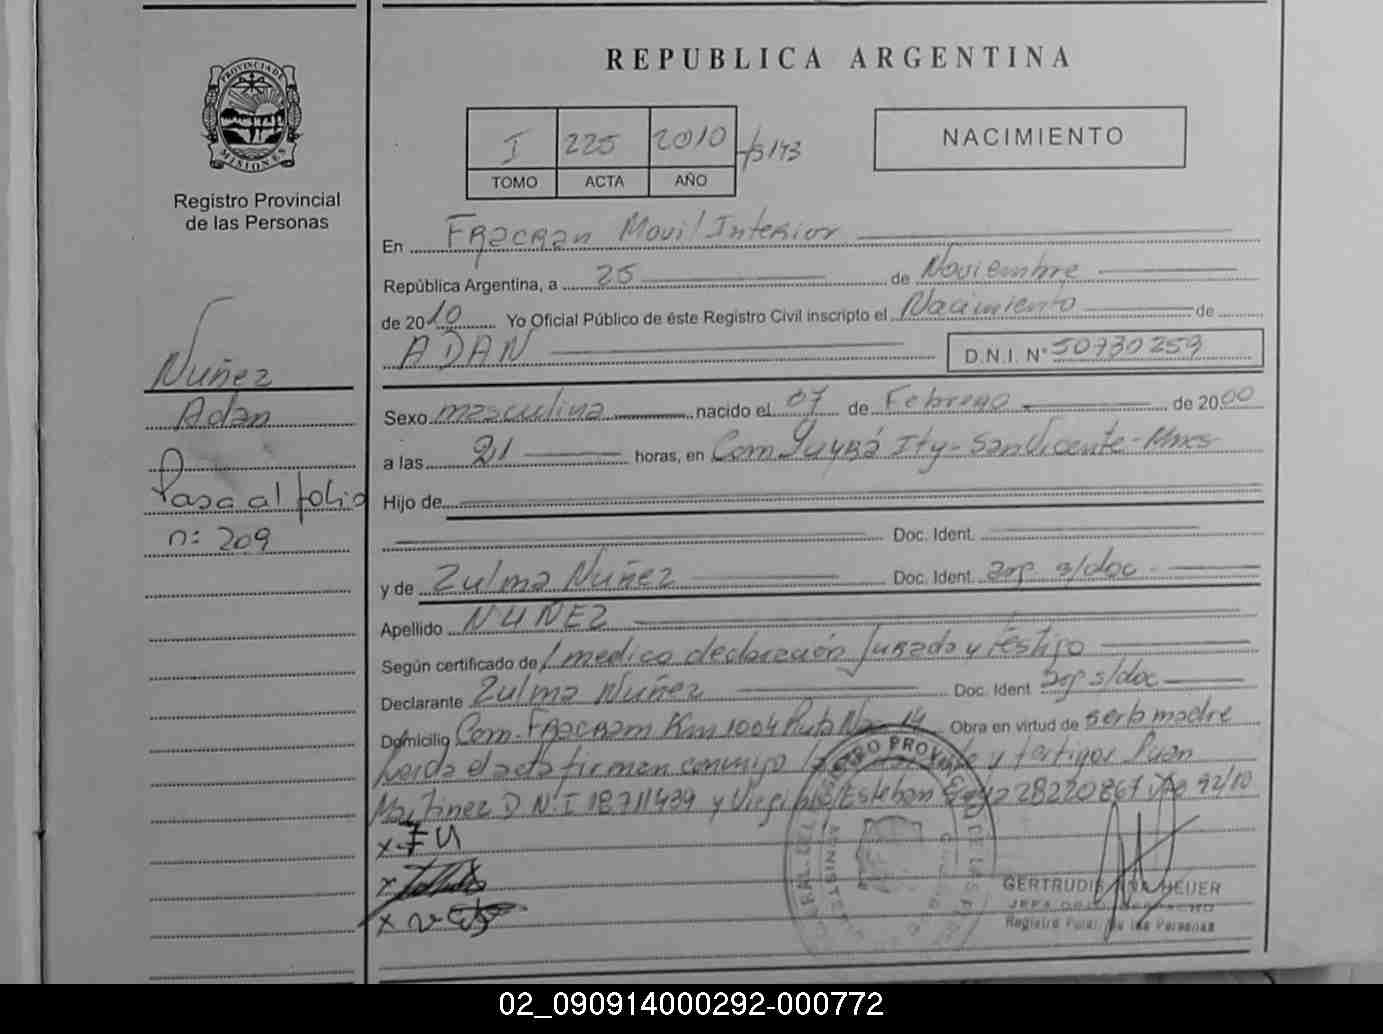 PROVINCIA DE
MISIONES
Registro Provincial
de las Personas
Nuñez
Adan
Pasa al folio
n: 209
REPUBLICA ARGENTINA
I 225 2010 fs 143
TOMO ACTA AÑO
NACIMIENTO
En Fracran Movil Interior
República Argentina, a 25 de Noviembre
de 2010 Yo Oficial Público de éste Registro Civil inscripto el Nacimiento de
ADAN D.N.I. N° 50730259
Sexo masculina nacido el 07 de Febrero de 2000
a las 21 horas, en Com Yuyrá Ity - San Vicente - Mnes
Hijo de
Doc. Ident.
y de Zulma Nuñez Doc. Ident. arg s/doc
Apellido NUÑEZ
Según certificado de / medico declaración Jurada y testigo
Declarante Zulma Nuñez Doc. Ident arg s/doc
Domicilio Com. Fracram Km 1004 Ruta No 14 Obra en virtud de ser la madre
leida el acta firman conmigo la y testigos Juan
Martinez D.N.I 18711439 y Virgilio Esteban 28220867 92/10
x
x
x
GERTRUDIS HEUER
JEFA
Registro de las Personas
02_090914000292-000772